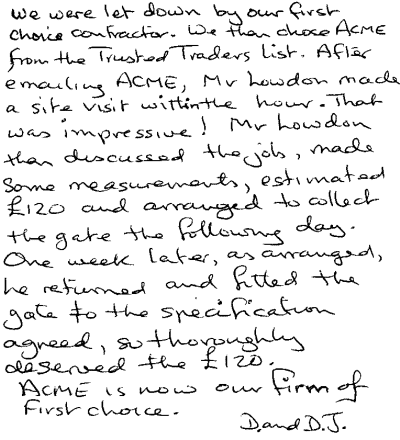 We were let down by our first
choice contractor. We then chose ACME
from the Trusted Traders list. After
emailing ACME, Mr Lowdon made
a site visit within the hour. That
was impressive! Mr Lowdon
then discussed the job, made
some measurements, estimated
£120 and arranged to collect
the gate the following day.
One week later, as arranged,
he returned and fitted the
gate to the specification
agreed, so thoroughly
deserved the £120.
ACME is now our firm of
first choice.
D. and D. J.